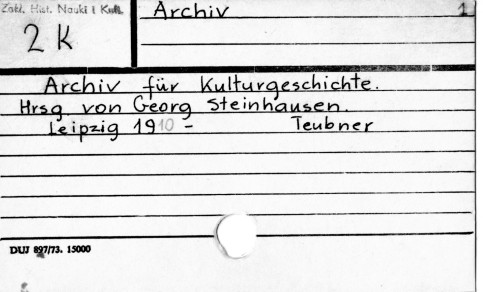 Zakł. Hist. Nauki i Kult.
2 K
Archiv 1
Archiv für Kulturgeschichte.
Hrsg von Georg Steinhausen.
Leipzig 1910 - Teubner
DUJ 897/73. 15000